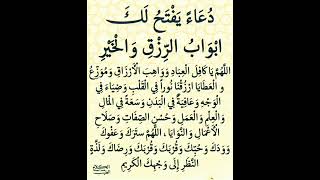 دُعَاءً يَفْتَحُ لَكَ
ابْوَابُ الرِّزْقِ وَالْخَيْرِ
اللَّهُمَّ يَا كَافِلَ الْعِبَادِ وَوَاهِبَ الْأَرْزَاقِ وَمُوَزِّعُ
و الْعَطَايَا ارْزُقْنَا نُوراً فِي الْقَلْبِ وَضِيَاءَ فِي
الْوَجْهِ وَعَافِيَةً فِي الْبَدَنِ وَسَعَةً فِي الْمَالِ
وَالْعِلْمِ وَالْعَمَلِ وَحُسْنِ الصِّفَاتِ وَصَلَاحِ
الْأَعْمَالِ وَالنَّوَايَا ، اللَّهُمَّ سِتْرَكَ وَعَفْوَكَ
وَوُدَّكَ وَحُبَّكَ وَقُرْبَكَ وَقُرْبَكَ وَرِضَاكَ وَلَذَّةِ
النَّظَرِ إِلَى وَجْهِكَ الْكَرِيمِ